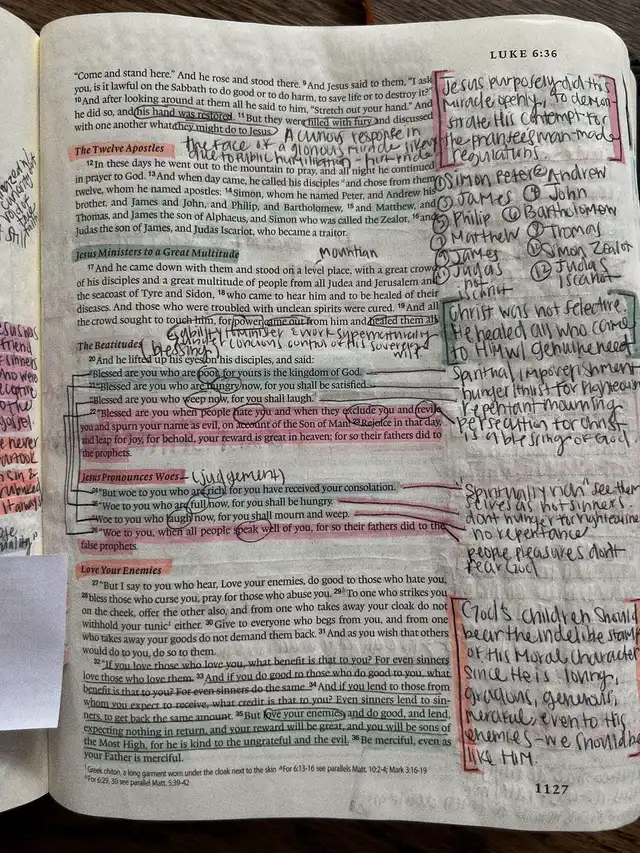 LUKE 6:36
"Come and stand here." And he rose and stood there. 9 And Jesus said to them, "I ask
you, is it lawful on the Sabbath to do good or to do harm, to save life or to destroy it?"
10 And after looking around at them all he said to him, "Stretch out your hand." And
he did so, and his hand was restored. 11 But they were filled with fury and discussed
with one another what they might do to Jesus.
A curious response in
the face of a glorious miracle
due to public humiliation - hurt pride
The Twelve Apostles
12 In these days he went out to the mountain to pray, and all night he continued
in prayer to God. 13 And when day came, he called his disciples and chose from them
twelve, whom he named apostles: 14 Simon, whom he named Peter, and Andrew his
brother, and James and John, and Philip, and Bartholomew, 15 and Matthew, and
Thomas, and James the son of Alphaeus, and Simon who was called the Zealot, 16 and
Judas the son of James, and Judas Iscariot, who became a traitor.
Jesus Ministers to a Great Multitude
mountian
17 And he came down with them and stood on a level place, with a great crowd
of his disciples and a great multitude of people from all Judea and Jerusalem and
the seacoast of Tyre and Sidon, 18 who came to hear him and to be healed of their
diseases. And those who were troubled with unclean spirits were cured. 19 And all
the crowd sought to touch him, for power came out from him and healed them all.
The Beatitudes
blessings
20 And he lifted up his eyes on his disciples, and said:
"Blessed are you who are poor, for yours is the kingdom of God.
21 "Blessed are you who are hungry now, for you shall be satisfied.
"Blessed are you who weep now, for you shall laugh.
22 "Blessed are you when people hate you and when they exclude you and revile
you and spurn your name as evil, on account of the Son of Man! 23 Rejoice in that day,
and leap for joy, for behold, your reward is great in heaven; for so their fathers did to
the prophets.
Jesus Pronounces Woes - (judgement)
24 "But woe to you who are rich, for you have received your consolation.
25 "Woe to you who are full now, for you shall be hungry.
"Woe to you who laugh now, for you shall mourn and weep.
26 "Woe to you, when all people speak well of you, for so their fathers did to the
false prophets.
Love Your Enemies
27 "But I say to you who hear, Love your enemies, do good to those who hate you,
28 bless those who curse you, pray for those who abuse you. 29 To one who strikes you
on the cheek, offer the other also, and from one who takes away your cloak do not
withhold your tunic¹ either. 30 Give to everyone who begs from you, and from one
who takes away your goods do not demand them back. 31 And as you wish that others
would do to you, do so to them.
32 "If you love those who love you, what benefit is that to you? For even sinners
love those who love them. 33 And if you do good to those who do good to you, what
benefit is that to you? For even sinners do the same. 34 And if you lend to those from
whom you expect to receive, what credit is that to you? Even sinners lend to sin-
ners, to get back the same amount. 35 But love your enemies, and do good, and lend,
expecting nothing in return, and your reward will be great, and you will be sons of
the Most High, for he is kind to the ungrateful and the evil. 36 Be merciful, even as
your Father is merciful.
1 Greek chiton, a long garment worn under the cloak next to the skin For 6:13-16 see parallels Matt. 10:2-4; Mark 3:16-19
For 6:29, 30 see parallel Matt. 5:39-42
Jesus purposely did this
miracle openly, to demon-
strate His contempt for
the pharisees man-made
regulations.
① Simon Peter ② Andrew
③ James ④ John
⑤ Philip ⑥ Bartholomew
⑦ Matthew ⑧ Thomas
⑨ James ⑩ Simon Zealot
⑪ Judas ⑫ Judas
not Iscariot
Iscariot
Christ was not selective.
He healed all who came
to Him w/ genuine need
Spiritual impoverishment
hunger/thirst for righteous
repentant mourning
persecution for Christ
is a blessing of God.
"Spiritually rich" see them
selves as not sinners
dont hunger for righteousness
no repentance
people pleasures don't
fear God
God's children should
bear the indelible stamp
of His moral character
since He is loving,
gracious, generous,
merciful, even to His
enemies - we should be
like HIM.
1127